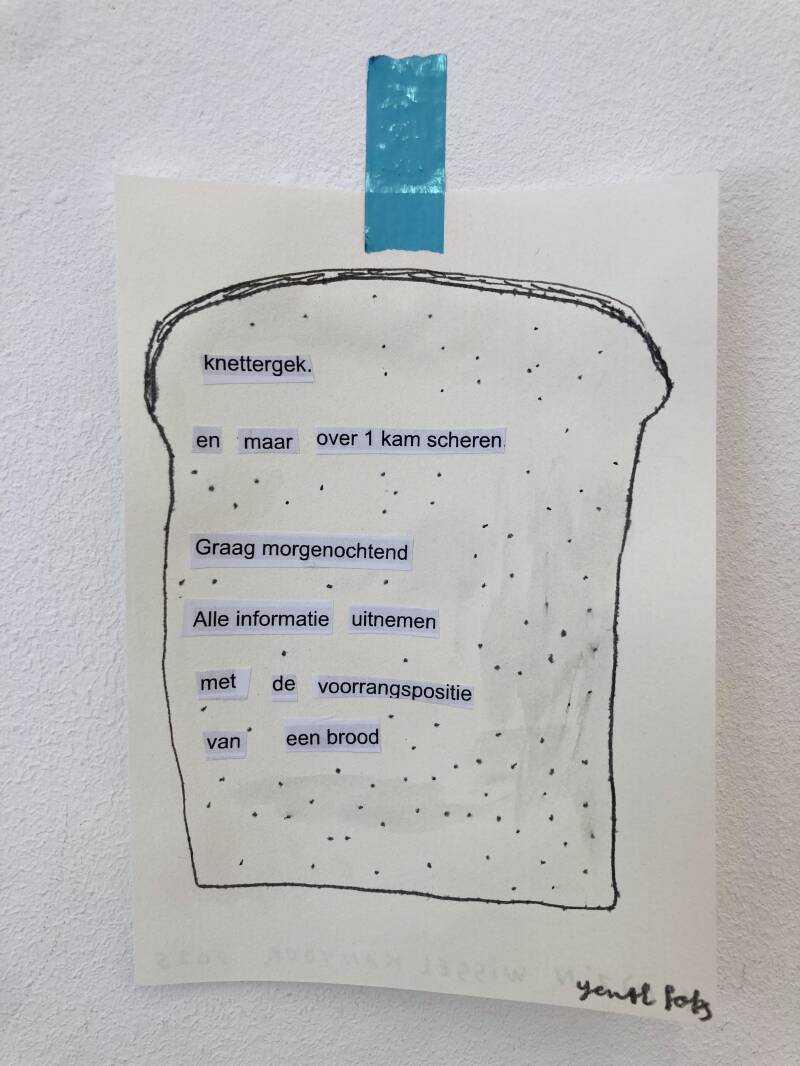 knettergek.
en maar over 1 kam scheren
Graag morgenochtend
Alle informatie uitnemen
met de voorrangspositie
van een brood
WISSEL KANTOOR 2025
yentl